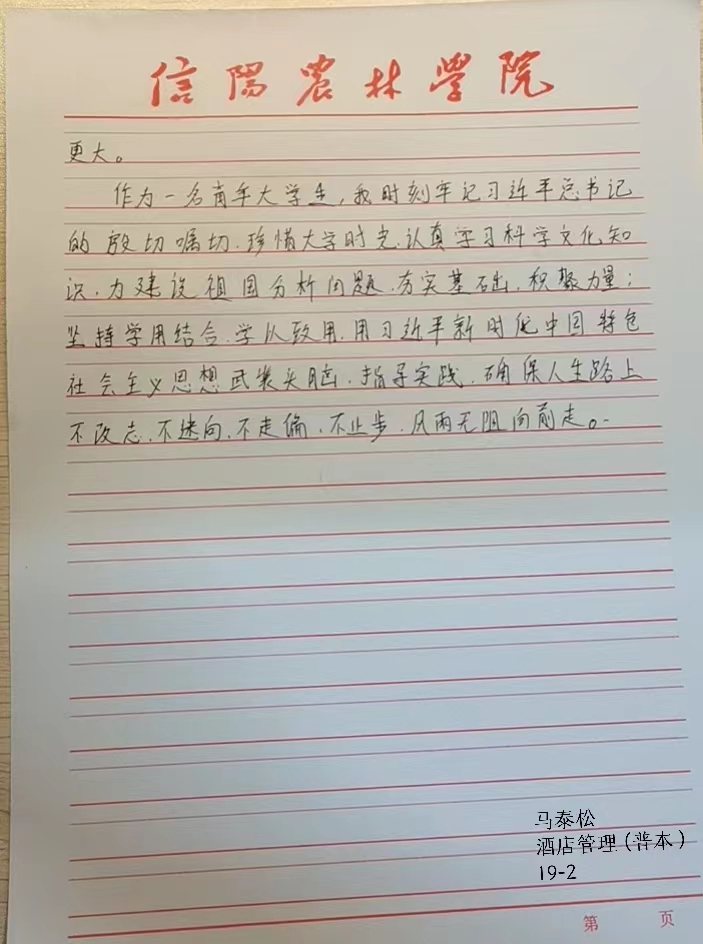 信陽農林學院
更大。
作为一名青年大学生,我时刻牢记习近平总书记
的殷切嘱切.珍惜大学时光.认真学习科学文化知
识.为建设祖国分析问题.夯实基础.积聚力量;
坚持学用结合.学以致用.用习近平新时代中国特色
社会主义思想武装头脑.指导实践.确保人生路上
不改志.不迷向.不走偏.不止步.风雨无阻向前走。
马泰松
酒店管理(普本)
19-2
第 页